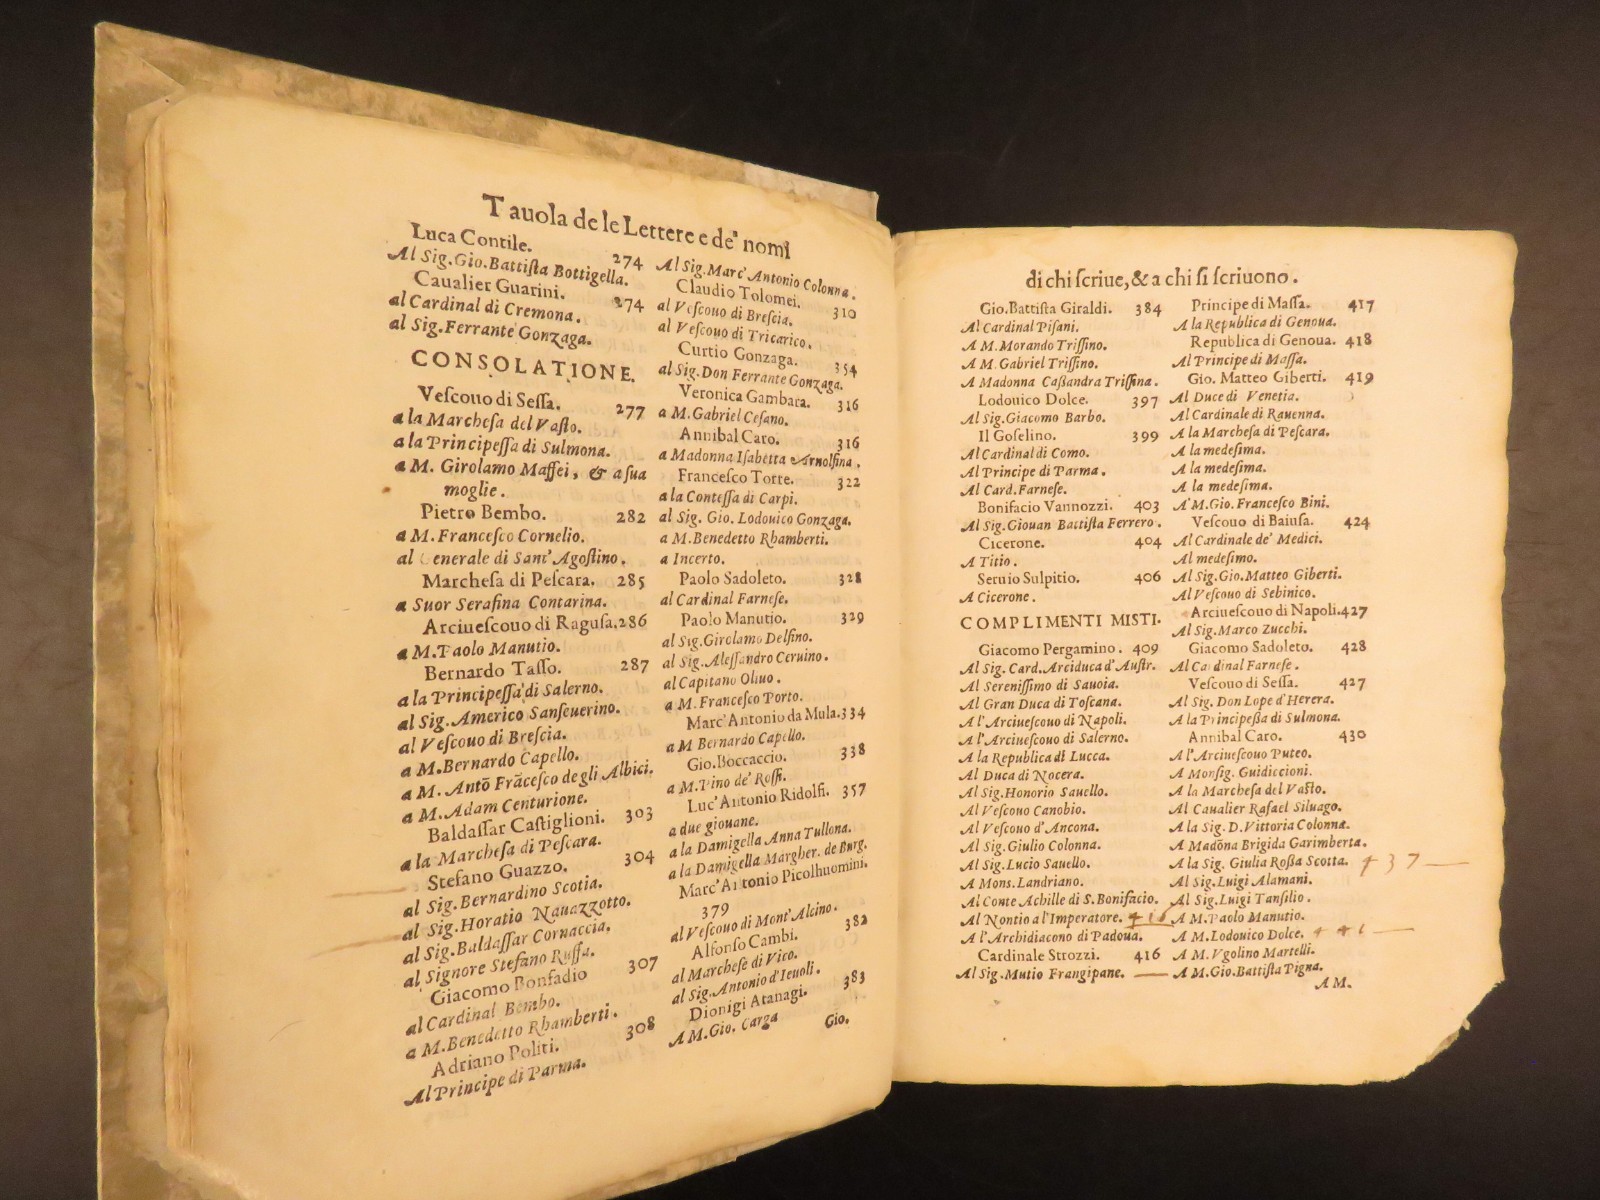 Tauola de le Lettere e de' nomi
Luca Contile. 274
Al Sig. Gio. Battiſta Bottigella.
Caualier Guarini. 274
al Cardinal di Cremona.
al Sig. Ferrante Gonzaga.
CONSOLATIONE.
Veſcouo di Seſſa. 277
a la Marcheſa del Vaſto.
a la Principeſſa di Sulmona.
a M. Girolamo Maffei, & a ſua
moglie.
Pietro Bembo. 282
a M. Franceſco Cornelio.
al Generale di Sant' Agoſtino.
Marcheſa di Peſcara. 285
a Suor Serafina Contarina.
Arciueſcouo di Raguſa. 286
a M. Paolo Manutio.
Bernardo Taſſo. 287
a la Principeſſa di Salerno.
al Sig. Americo Sanſeuerino.
al Veſcouo di Breſcia.
a M. Bernardo Capello.
a M. Antõ Frãceſco degli Albici.
a M. Adam Centurione.
Baldaſſar Caſtiglioni. 303
a la Marcheſa di Peſcara.
Stefano Guazzo. 304
al Sig. Bernardino Scotia.
al Sig. Horatio Nauazzotto.
al Sig. Baldaſſar Cornaccia.
al Signore Stefano Ruffa.
Giacomo Bonfadio 307
al Cardinal Bembo.
a M. Benedetto Rhamberti.
Adriano Politi. 308
Al Principe di Parma.
Al Sig. Marc' Antonio Colonna.
Claudio Tolomei. 310
al Veſcouo di Breſcia.
al Veſcouo di Tricarico.
Curtio Gonzaga. 354
al Sig. Don Ferrante Gonzaga.
Veronica Gambara. 316
a M. Gabriel Ceſano.
Annibal Caro. 316
a Madonna Iſabetta Arnolfina.
Franceſco Torre. 322
a la Conteſſa di Carpi.
al Sig. Gio. Lodouico Gonzaga.
a M. Benedetto Rhamberti.
a Incerto.
Paolo Sadoleto. 328
al Cardinal Farneſe.
Paolo Manutio. 329
al Sig. Girolamo Delfino.
al Sig. Aleſſandro Ceruino.
al Capitano Oliuo.
a M. Franceſco Porto.
Marc' Antonio da Mula. 334
a M Bernardo Capello.
Gio. Boccaccio. 338
a M. Pino de' Roſſi.
Luc' Antonio Ridolfi. 357
a due giouane.
a la Damigella Anna Tullona.
a la Damigella Margher. de Burg.
Marc' Antonio Picolhuomini.
379
al Veſcouo di Mont' Alcino.
Alfonſo Cambi. 382
al Marcheſe di Vico.
al Sig. Antonio d'Ieuoli.
Dionigi Atanagi. 383
A M. Gio. Carga
Gio.
di chi ſcriue, & a chi ſi ſcriuono.
Gio. Battiſta Giraldi. 384
Al Cardinal Piſani.
A M. Morando Triſſino.
A M. Gabriel Triſſino.
A Madonna Caßandra Triſſina.
Lodouico Dolce. 397
Al Sig. Giacomo Barbo.
Il Goſelino. 399
Al Cardinal di Como.
Al Principe di Parma.
Al Card. Farneſe.
Bonifacio Vannozzi. 403
Al Sig. Giouan Battiſta Ferrero.
Cicerone. 404
A Titio.
Seruio Sulpitio. 406
A Cicerone.
COMPLIMENTI MISTI.
Giacomo Pergamino. 409
Al Sig. Card. Arciduca d'Auſtr.
Al Sereniſſimo di Sauoia.
Al Gran Duca di Toſcana.
A l'Arciueſcouo di Napoli.
A l'Arciueſcouo di Salerno.
A la Republica di Lucca.
Al Duca di Nocera.
Al Sig. Honorio Sauello.
Al Veſcouo Canobio.
Al Veſcouo d'Ancona.
Al Sig. Giulio Colonna.
Al Sig. Lucio Sauello.
A Mons. Landriano.
Al Conte Achille di S. Bonifacio.
Al Nontio a l'Imperatore. 416
A l'Archidiacono di Padoua.
Cardinale Strozzi. 416
Al Sig. Mutio Frangipane.
Principe di Maſſa. 417
A la Republica di Genoua.
Republica di Genoua. 418
Al Principe di Maſſa.
Gio. Matteo Giberti. 419
Al Duce di Venetia.
Al Cardinale di Rauenna.
A la Marcheſa di Peſcara.
A la medeſima.
A la medeſima.
A la medeſima.
A' M. Gio. Franceſco Bini.
Veſcouo di Baiuſa. 424
Al Cardinale de' Medici.
Al medeſimo.
Al Sig. Gio. Matteo Giberti.
Al Veſcouo di Sebinico.
Arciueſcouo di Napoli. 427
Al Sig. Marco Zucchi.
Giacomo Sadoleto. 428
Al Cardinal Farneſe.
Veſcouo di Seſſa. 427
Al Sig. Don Lope d'Herera.
A la Principeßa di Sulmona.
Annibal Caro. 430
A l'Arciueſcouo Puteo.
A Monſig. Guidiccioni.
A la Marcheſa del Vaſto.
Al Caualier Rafael Siluago.
A la Sig. D. Vittoria Colonna.
A Madõna Brigida Garimberta.
A la Sig. Giulia Roßa Scotta. 437
Al Sig. Luigi Alamani.
Al Sig. Luigi Tanſilio.
A M. Paolo Manutio.
A M. Lodouico Dolce. 441
A M. Vgolino Martelli.
A M. Gio. Battiſta Pigna.
A M.